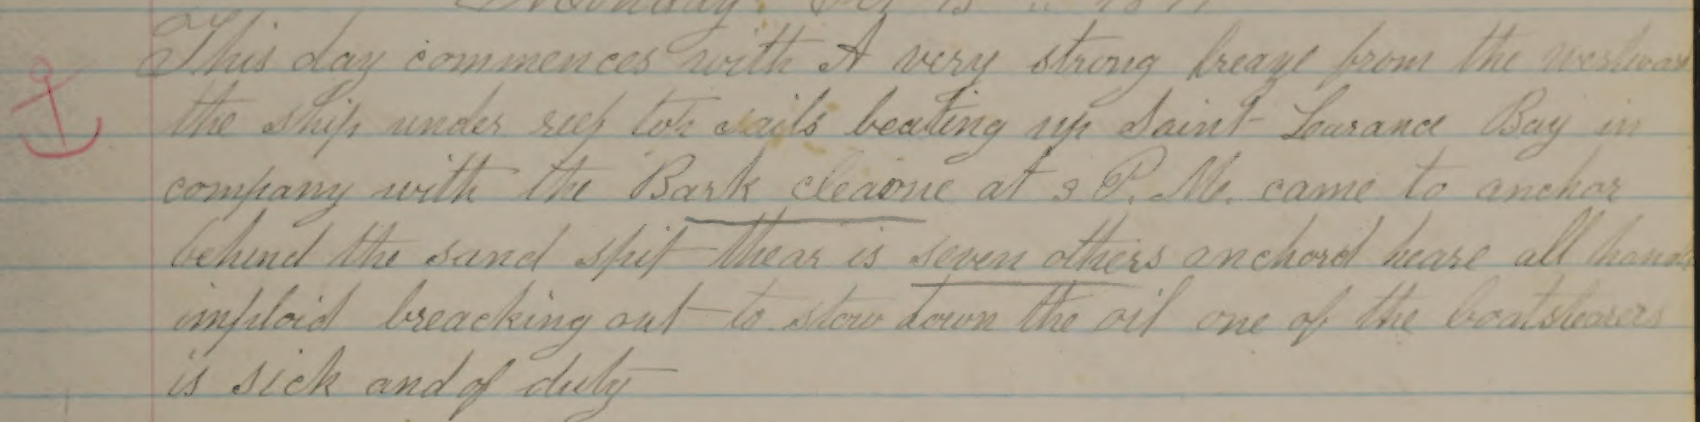 Monday
This day commences with A very strong breaze from the westward
the ship under reef top sails beating up Saint Lourance Bay in
company with the Bark cleaone at 3 P. M. came to anchor
behind the sand spit thear is seven others anchord heare all hands
imploid breacking out to stow down the oil one of the boatstearers
is sick and of duty